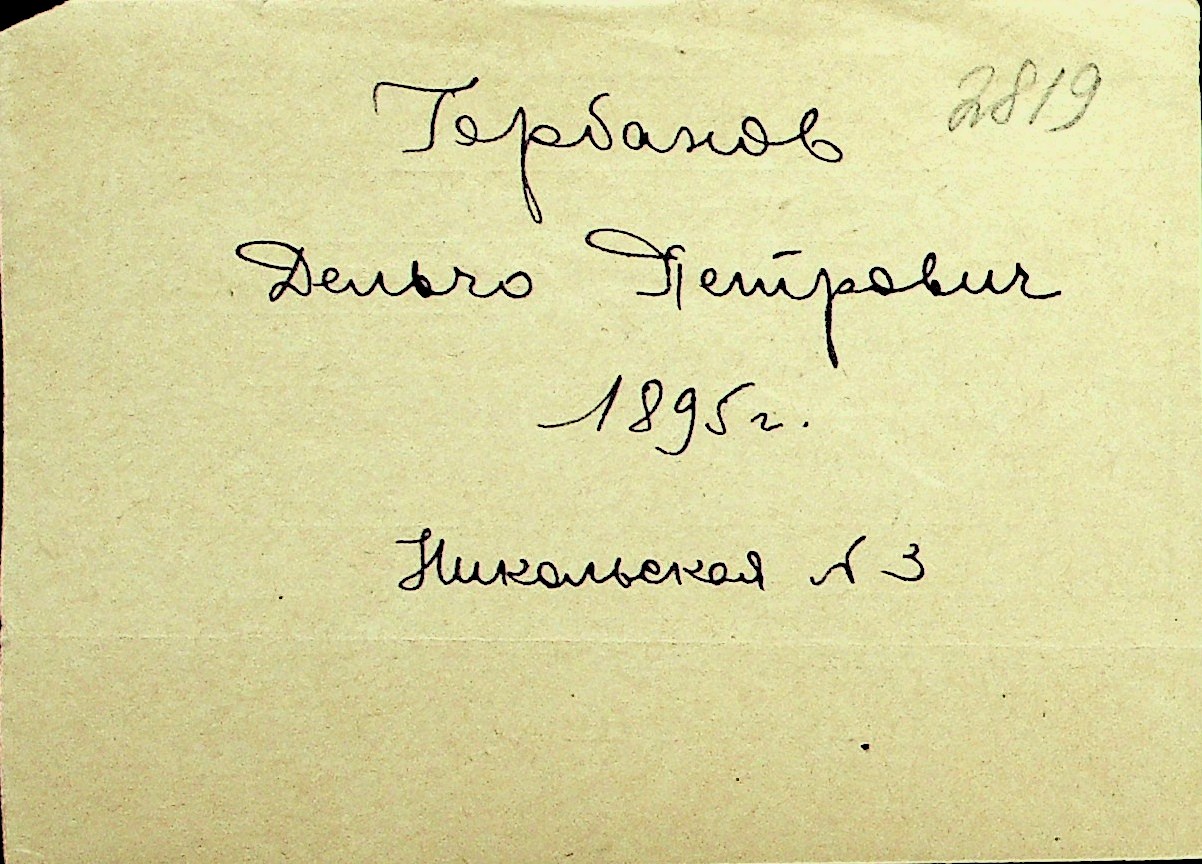 2819
Гербанов
Дельчо Петрович
1895г.
Никольская N 3